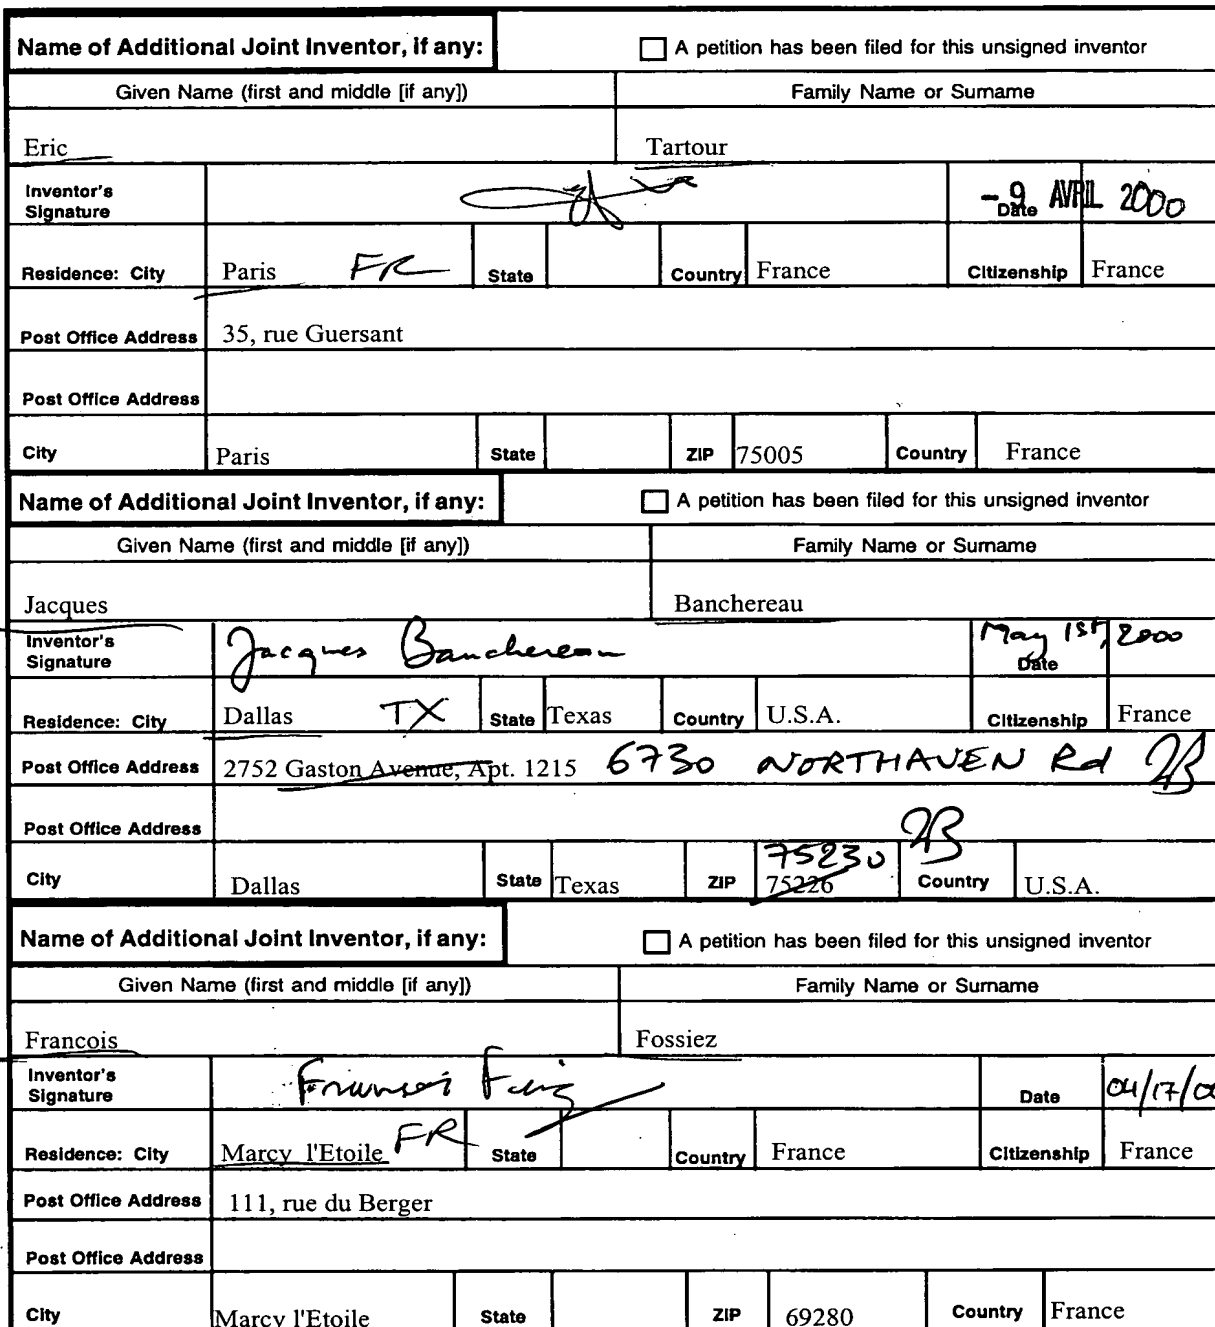 Name of Additional Joint Inventor, if any: A petition has been filed for this unsigned inventor
Given Name (first and middle [if any]) Family Name or Surname
Eric Tartour
Inventor's Signature - 9 AVRIL 2000 Date
Residence: City Paris FR State Country France Citizenship France
Post Office Address 35, rue Guersant
Post Office Address
City Paris State ZIP 75005 Country France
Name of Additional Joint Inventor, if any: A petition has been filed for this unsigned inventor
Given Name (first and middle [if any]) Family Name or Surname
Jacques Banchereau
Inventor's Signature Jacques Banchereau May 1st, 2000 Date
Residence: City Dallas TX State Texas Country U.S.A. Citizenship France
Post Office Address 2752 Gaston Avenue, Apt. 1215 6730 NORTHAVEN Rd JB
Post Office Address
JB
75230
City Dallas State Texas ZIP 75226 Country U.S.A.
Name of Additional Joint Inventor, if any: A petition has been filed for this unsigned inventor
Given Name (first and middle [if any]) Family Name or Surname
Francois Fossiez
Inventor's Signature Date 04/17/0
Residence: City Marcy l'Etoile FR State Country France Citizenship France
Post Office Address 111, rue du Berger
Post Office Address
City Marcy l'Etoile State ZIP 69280 Country France